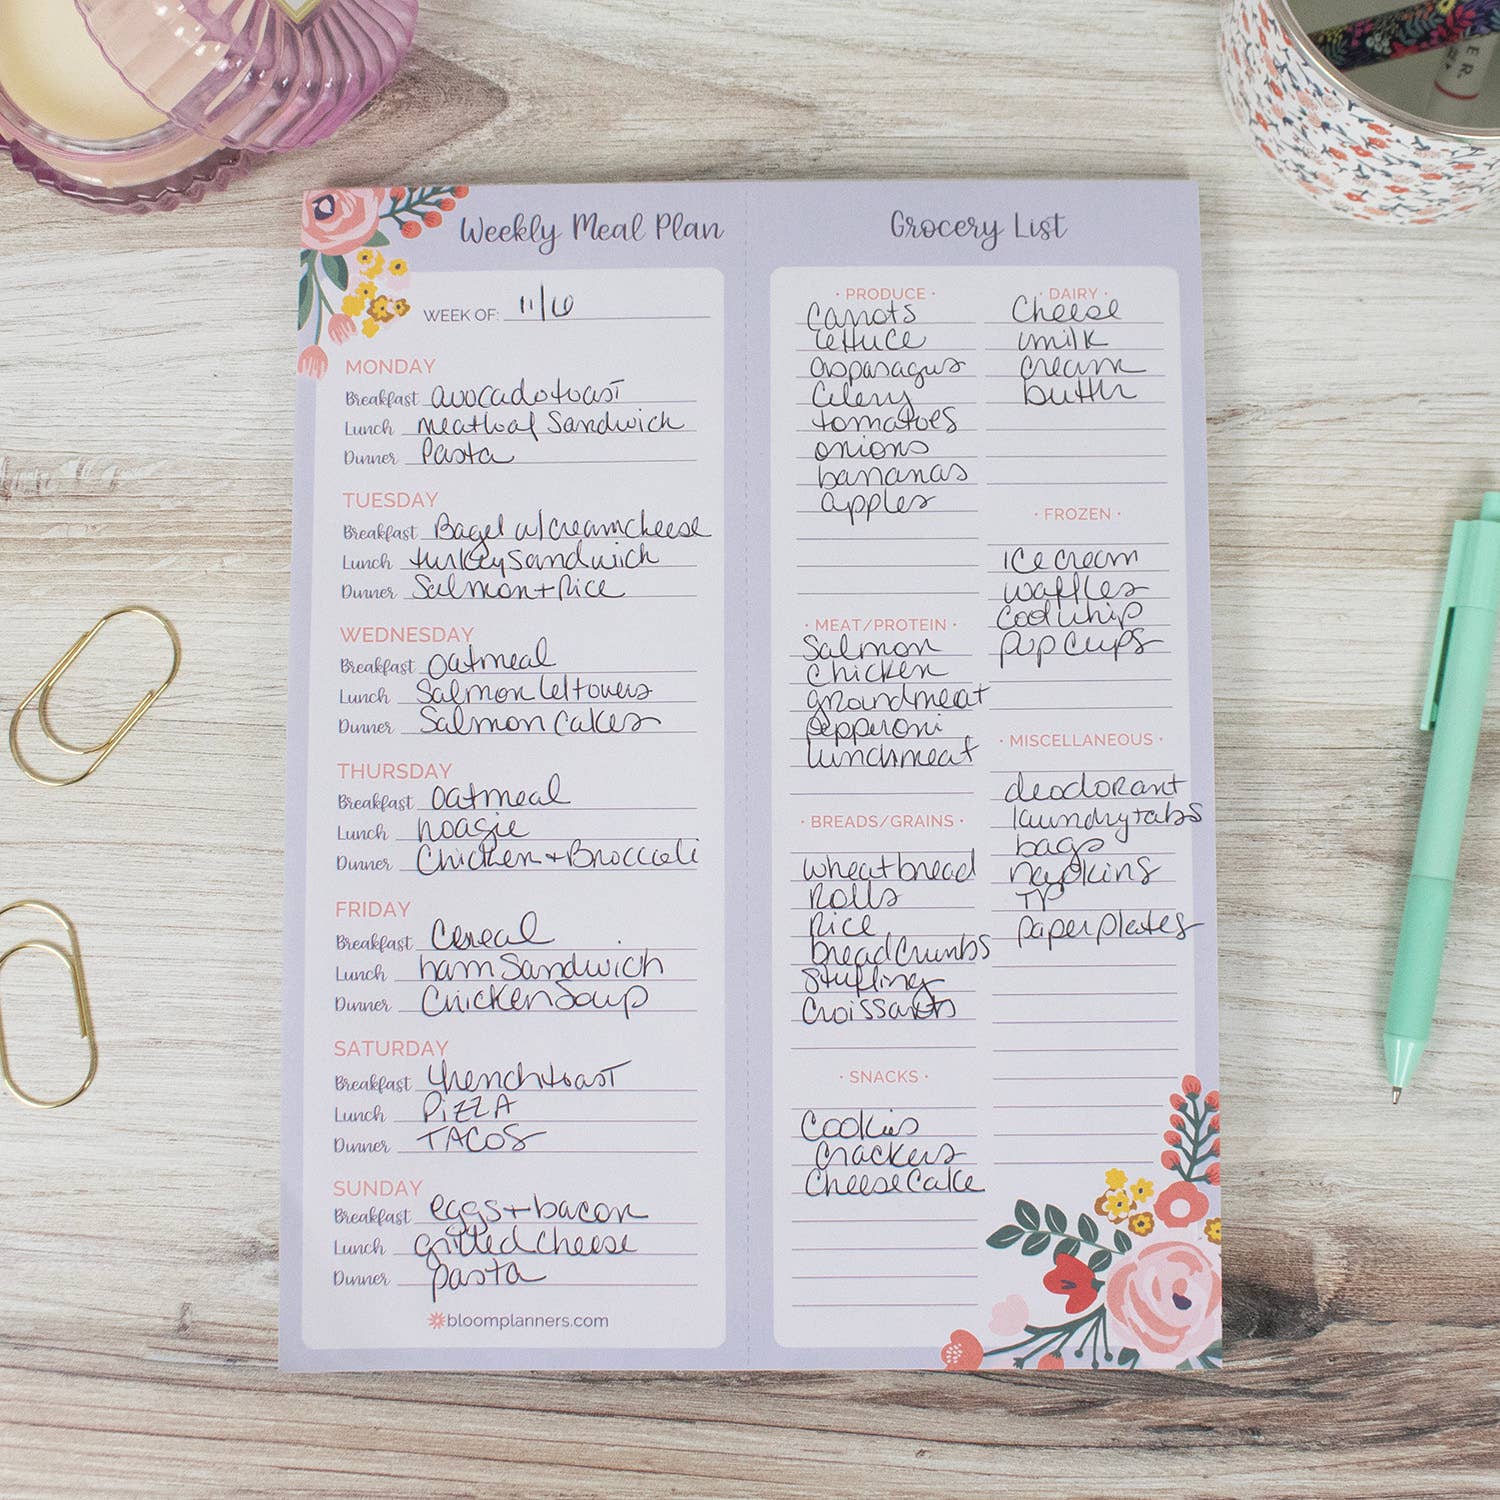 Weekly Meal Plan
WEEK OF: 11/6
MONDAY
Breakfast avocado toast
Lunch meatloaf Sandwich
Dinner Pasta
TUESDAY
Breakfast Bagel w/ cream cheese
Lunch turkey sandwich
Dinner Salmon + Rice
WEDNESDAY
Breakfast oatmeal
Lunch Salmon leftovers
Dinner Salmon Cakes
THURSDAY
Breakfast oatmeal
Lunch hoagie
Dinner Chicken + Broccoli
FRIDAY
Breakfast Cereal
Lunch ham Sandwich
Dinner Chicken Soup
SATURDAY
Breakfast french toast
Lunch PIZZA
Dinner TACOS
SUNDAY
Breakfast eggs + bacon
Lunch grilled cheese
Dinner pasta
bloomplanners.com
Grocery List
· PRODUCE ·
Carrots
lettuce
asparagus
Celery
tomatoes
onions
bananas
apples
· MEAT/PROTEIN ·
Salmon
Chicken
ground meat
pepperoni
lunchmeat
· BREADS/GRAINS ·
wheat bread
Rolls
Rice
bread Crumbs
Stuffing
Croissants
· SNACKS ·
Cookies
Crackers
Cheese Cake
· DAIRY ·
Cheese
milk
cream
butter
· FROZEN ·
ice cream
waffles
Cool whip
pup cups
· MISCELLANEOUS ·
deodorant
laundry tabs
bags
napkins
TP
paper plates